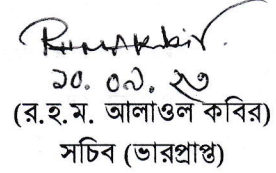 ১০. ০৯. ২৩
(র.হ.ম. আলাওল কবির)
সচিব (ভারপ্রাপ্ত)